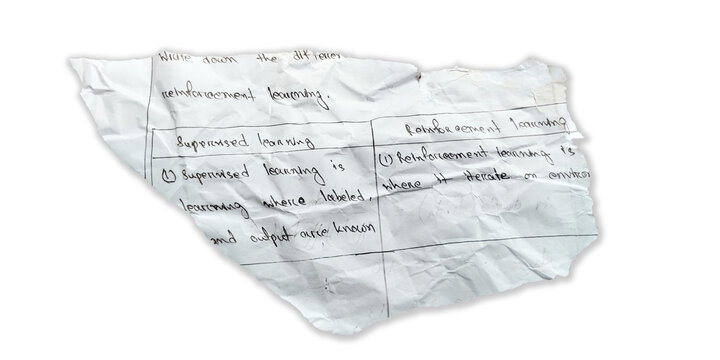 Write down the differen
reinforcement learning.
Supervised learning
Reinforcement learning
(1) Supervised learning is
learning where labeled,
and output are known
(1) Reinforcement learning is
where it iterate on environ